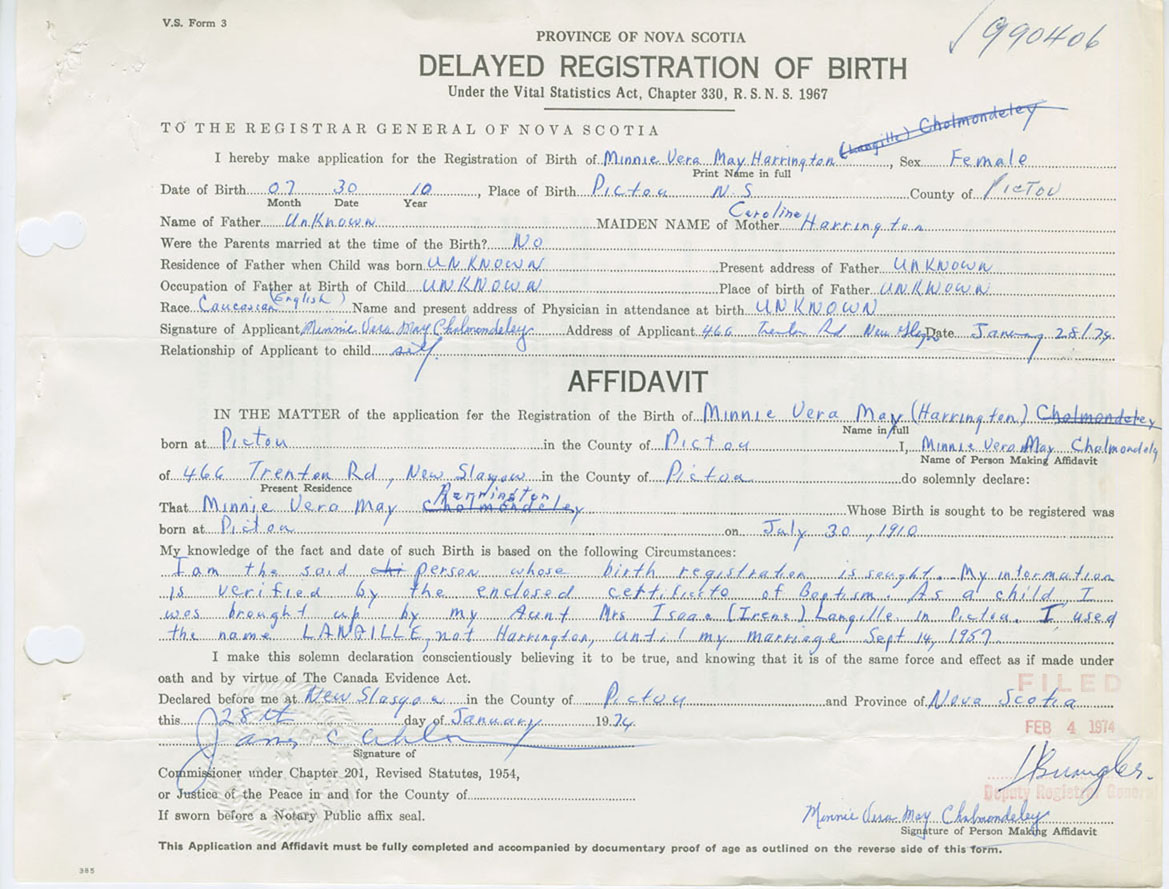 V.S. Form 3
990406
PROVINCE OF NOVA SCOTIA
DELAYED REGISTRATION OF BIRTH
Under the Vital Statistics Act, Chapter 330, R. S. N. S. 1967
TO THE REGISTRAR GENERAL OF NOVA SCOTIA
(Langille) Cholmondeley
I hereby make application for the Registration of Birth of Minnie Vera May Harrington, Sex Female
Print Name in full
Date of Birth 07 30 10, Place of Birth Pictou N. S County of PICTOU
Month Date Year
Name of Father Unknown MAIDEN NAME of Mother Caroline Harrington
Were the Parents married at the time of the Birth? No
Residence of Father when Child was born UNKNOWN Present address of Father UNKNOWN
Occupation of Father at Birth of Child UNKNOWN Place of birth of Father UNKNWOWN
Race Caucasian (English) Name and present address of Physician in attendance at birth UNKNOWN
Signature of Applicant Minnie Vera May Cholmondeley Address of Applicant 466 Trenton Rd New Date January 28/74
Relationship of Applicant to child self
AFFIDAVIT
IN THE MATTER of the application for the Registration of the Birth of Minnie Vera May (Harrington) Cholmondeley
Name in full
born at Pictou in the County of Pictou I, Minnie Vera May Cholmondely
Name of Person Making Affidavit
of 466 Trenton Rd, New Glasgow in the County of Pictou do solemnly declare:
Present Residence
That Minnie Vera May Cholmondeley Whose Birth is sought to be registered was
born at Pictou on July 30, 1910
My knowledge of the fact and date of such Birth is based on the following Circumstances:
I am the said chi person whose birth registration is sought. My information
is verified by the enclosed certificate of Baptism. As a child, I
was brought up by my Aunt Mrs Isaac (Irene) Langille in Pictou. I used
the name LANGILLE, not Harrington, until my marriage Sept 14, 1957.
I make this solemn declaration conscientiously believing it to be true, and knowing that it is of the same force and effect as if made under
oath and by virtue of The Canada Evidence Act.
FILED
Declared before me at New Glasgow in the County of Pictou and Province of Nova Scotia
this 28th day of January 1974
FEB 4 1974
Signature of
Commissioner under Chapter 201, Revised Statutes, 1954,
or Justice of the Peace in and for the County of
Deputy Registrar General
If sworn before a Notary Public affix seal.
Minnie Vera May Cholmondeley
Signature of Person Making Affidavit
This Application and Affidavit must be fully completed and accompanied by documentary proof of age as outlined on the reverse side of this form.
385